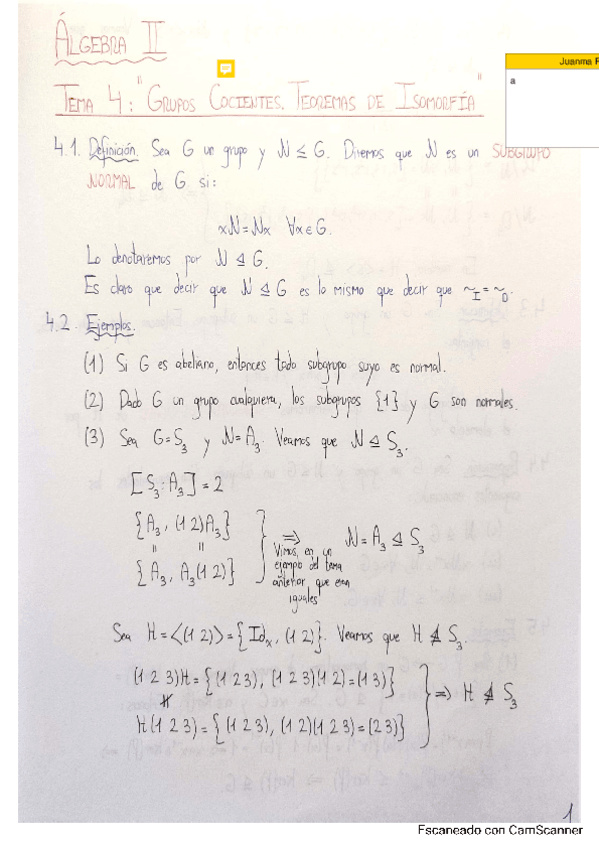 ÁLGEBRA II
Juanma
a
TEMA 4: "GRUPOS COCIENTES. TEOREMAS DE ISOMORFÍA"
4.1. Definición. Sea G un grupo y N ≤ G. Diremos que N es un SUBGRUPO
NORMAL de G si:
xN = Nx ∀x ∈ G.
Lo denotaremos por N ⊴ G.
Es claro que decir que N ⊴ G es lo mismo que decir que ~I = ~D.
4.2. Ejemplos.
(1) Si G es abeliano, entonces todo subgrupo suyo es normal.
(2) Dado G un grupo cualquiera, los subgrupos {1} y G son normales.
(3) Sea G=S₃ y N=A₃. Veamos que N ⊴ S₃.
[S₃:A₃]=2
{A₃, (1 2)A₃}
= =
{A₃, A₃(1 2)}
⟹
Vimos, en un
ejemplo del tema
anterior, que eran
iguales
N = A₃ ⊴ S₃
Sea H = <(1 2)> = {Idₓ, (1 2)}. Veamos que H ⋬ S₃.
(1 2 3)H = {(1 2 3), (1 2 3)(1 2) = (1 3)}
≠
H(1 2 3) = {(1 2 3), (1 2)(1 2 3) = (2 3)}
⟹ H ⋬ S₃
1
Escaneado con CamScanner